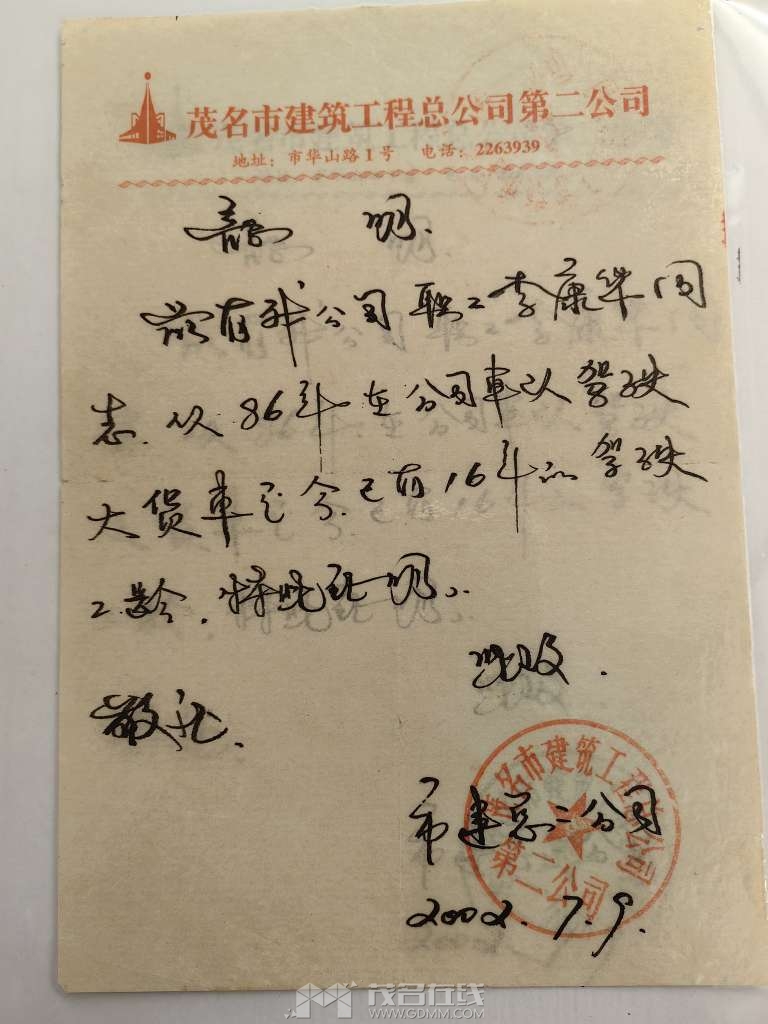 茂名市建筑工程总公司第二公司
地址：市华山路1号 电话：2263939
明.
兹有我公司职工李康华同
志.从86年在公司車队驾驶
大货車至今.已有16年的驾驶
工龄.特此证明.
此致.
敬礼.
市建总二公司
2002.7.9.
茂名市建筑工程总公司
第二公司
茂名在线
WWW.GDMM.COM